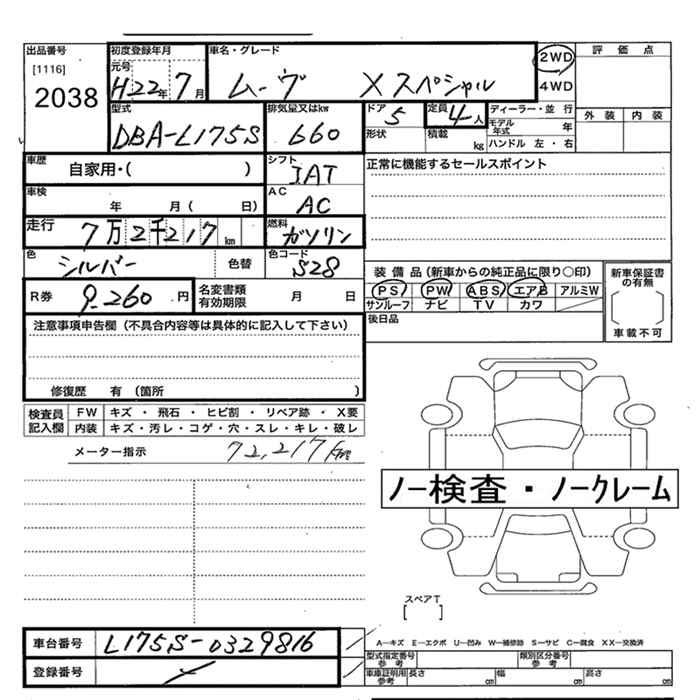 出品番号
[1116]
2038
初度登録年月
元号
H22年7月
車名・グレード
ムーヴ Xスペシャル
2WD
4WD
評価点
外装 内装
型式
DBA-L175S
排気量又はkw
660
ドア 5
形状
定員 4人
積載 kg
ディーラー・並行
モデル年式 年
ハンドル 左・右
車歴
自家用・( )
シフト
IAT
正常に機能するセールスポイント
車検
年 月( 日)
AC
AC
走行
7万2千217km
燃料
ガソリン
色
シルバー
色替
色コード
S28
装備品(新車からの純正品に限り○印)
PS PW ABS エアB アルミW
サンルーフ ナビ TV カワ
新車保証書の有無
[ ]
車載不可
R券 9,260円
名変書類有効期限 月 日
後日品
注意事項申告欄(不具合内容等は具体的に記入して下さい)
修復歴 有(箇所 )
検査員記入欄
FW キズ・飛石・ヒビ割・リペア跡・X要
内装 キズ・汚レ・コゲ・穴・スレ・キレ・破レ
メーター指示 72,217km
ノー検査・ノークレーム
スペアT
[ ]
車台番号 L175S-0329816
登録番号
A—キズ E—エクボ U—凹み W—補修跡 S—サビ C—腐食 XX—交換済
型式指定番号参考
類別区分番号参考
車庫証明用参考 長さ cm 幅 cm 高さ cm